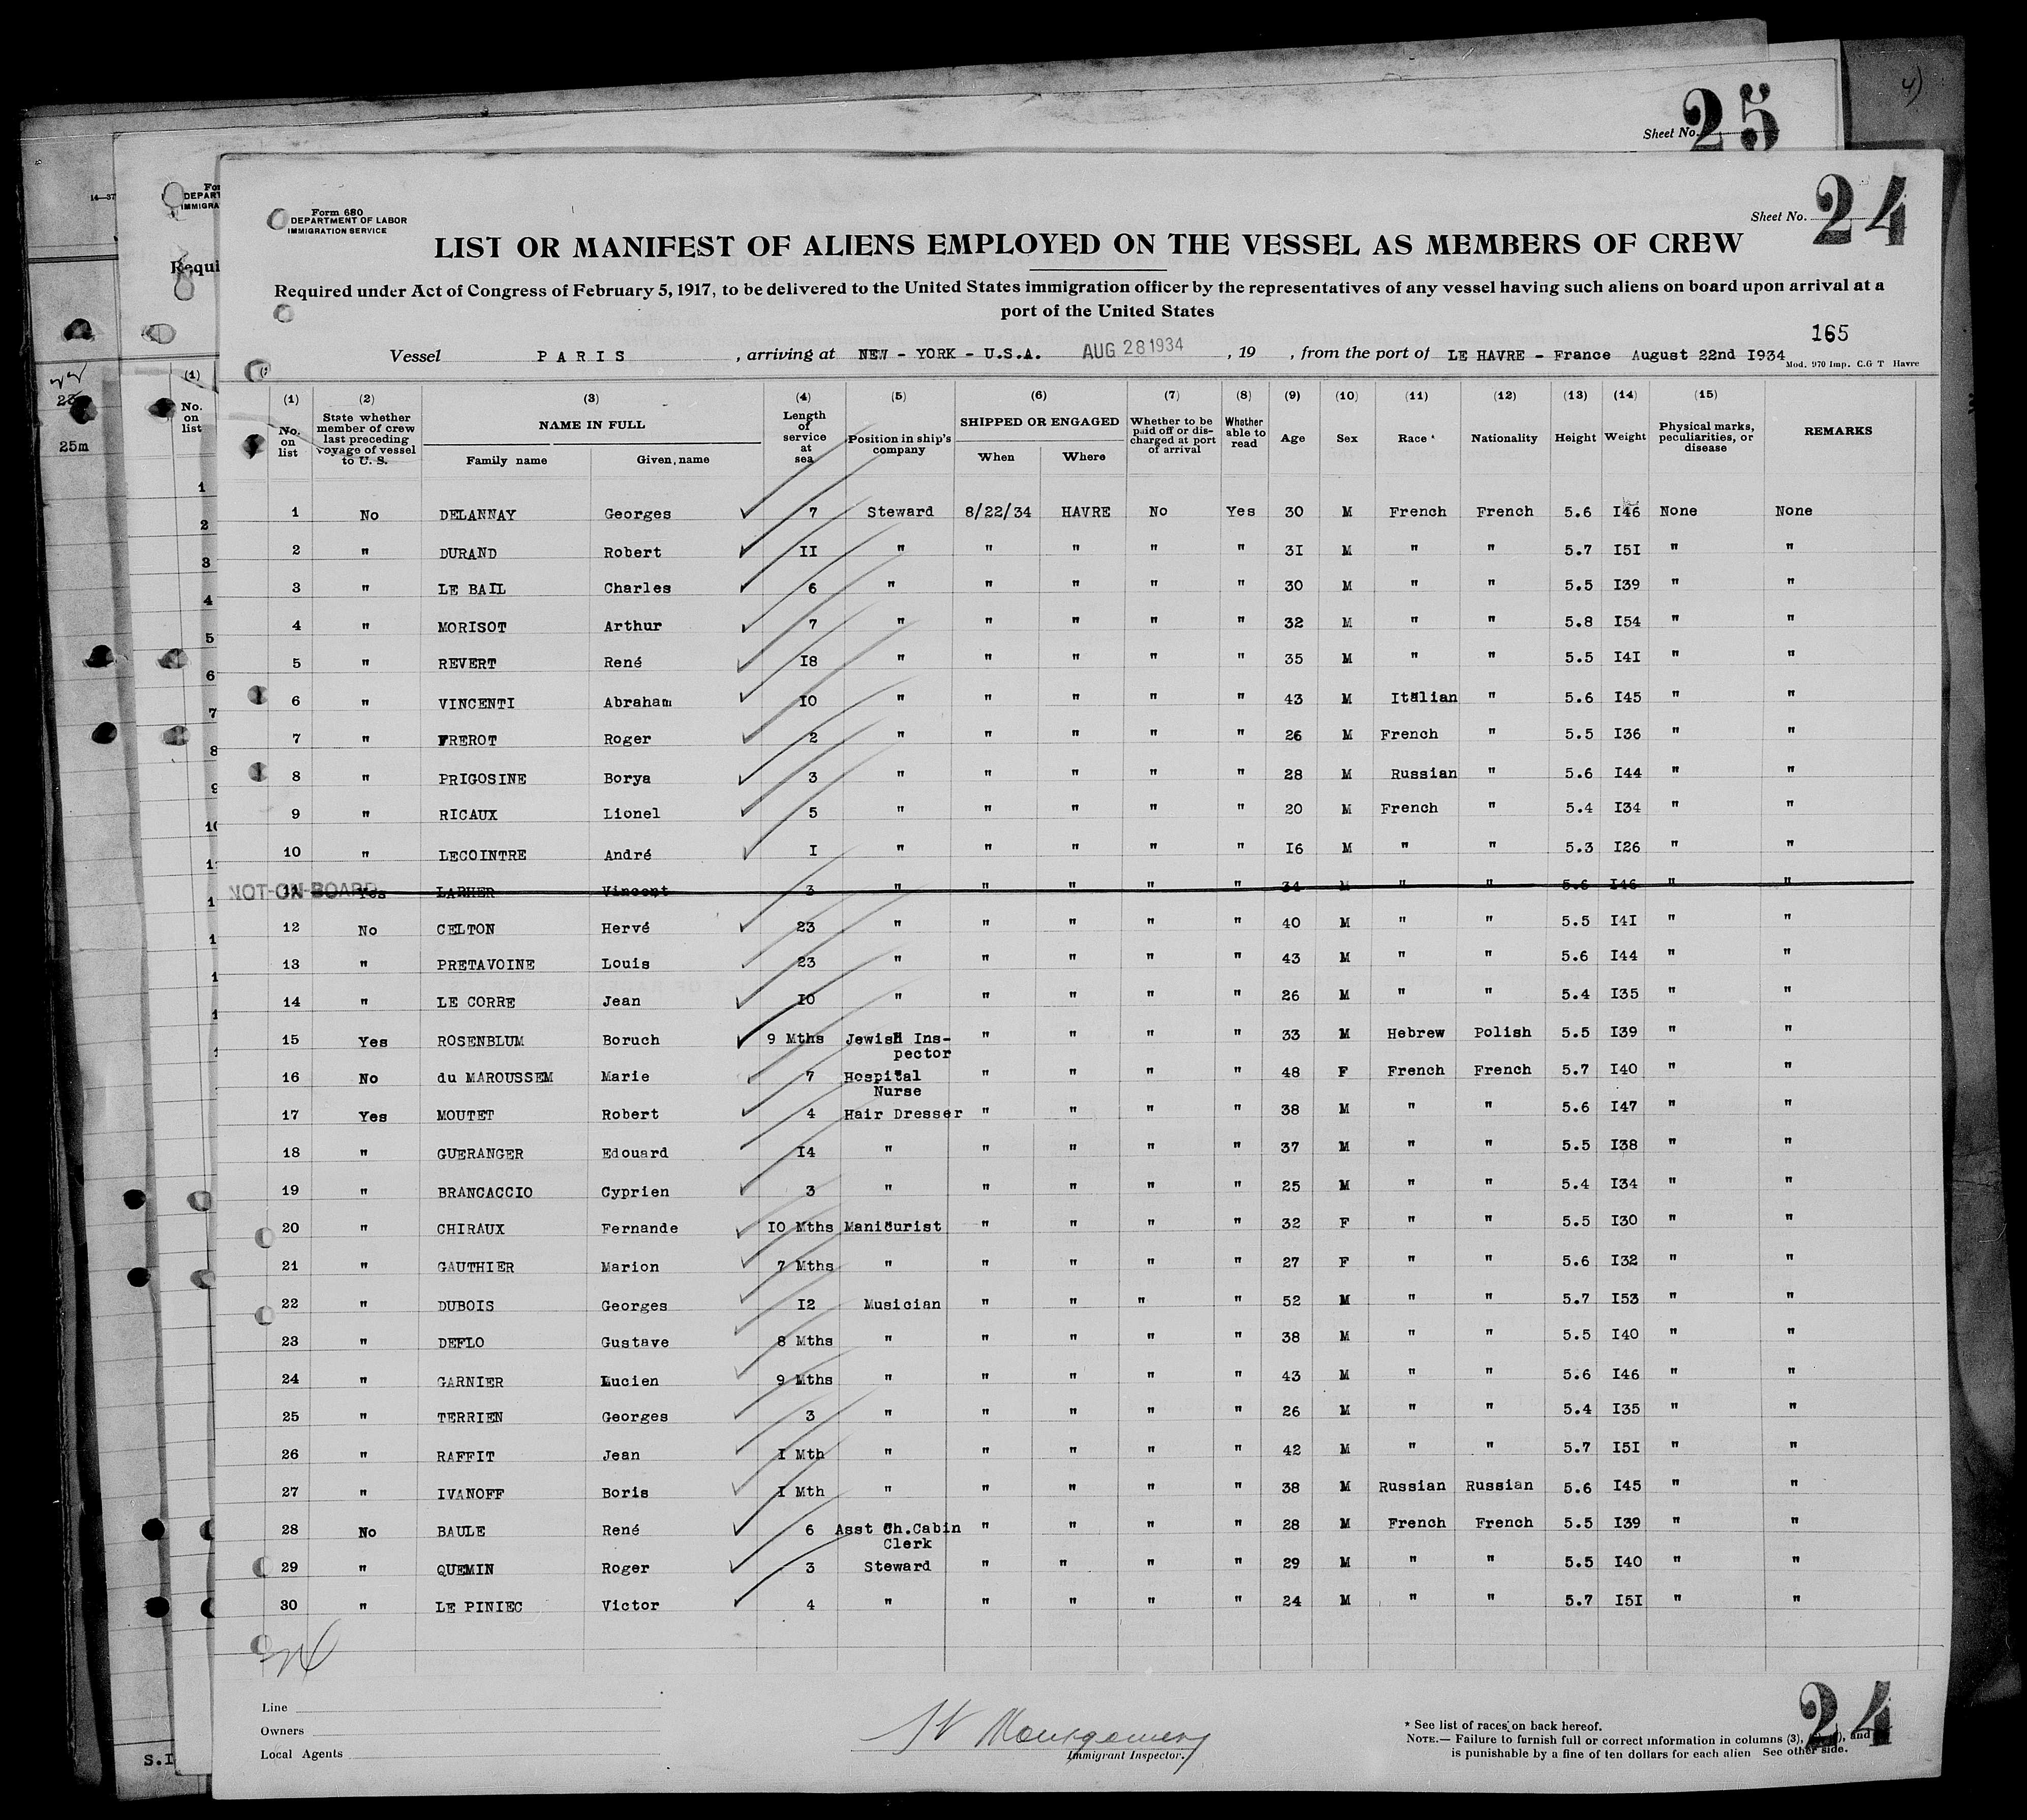 4)
Sheet No. 25
14—37
DEPART
IMMIGRA
Requi
25m
(1)
No.
on
list
1
2
3
4
5
6
7
8
S.I
Sheet No. 24
Form 680
DEPARTMENT OF LABOR
IMMIGRATION SERVICE
LIST OR MANIFEST OF ALIENS EMPLOYED ON THE VESSEL AS MEMBERS OF CREW
Required under Act of Congress of February 5, 1917, to be delivered to the United States immigration officer by the representatives of any vessel having such aliens on board upon arrival at a
port of the United States
165
Vessel PARIS , arriving at NEW - YORK - U.S.A. AUG 28 1934 , 19 , from the port of LE HAVRE - France August 22nd I934
Mod. 970 Imp. C.G T Havre
(1) (2) (3) (4) (5) (6) (7) (8) (9) (10) (11) (12) (13) (14) (15)
No. on list State whether member of crew last preceding voyage of vessel to U. S. NAME IN FULL Family name Given name Length of service at sea Position in ship's company SHIPPED OR ENGAGED When Where Whether to be paid off or discharged at port of arrival Whether able to read Age Sex Race * Nationality Height Weight Physical marks, peculiarities, or disease REMARKS
1 No DELANNAY Georges 7 Steward 8/22/34 HAVRE No Yes 30 M French French 5.6 I46 None None
2 " DURAND Robert II " " " " " 3I M " " 5.7 I5I " "
3 " LE BAIL Charles 6 " " " " " 30 M " " 5.5 I39 " "
4 " MORISOT Arthur 7 " " " " " 32 M " " 5.8 I54 " "
5 " REVERT René I8 " " " " " 35 M " " 5.5 I4I " "
6 " VINCENTI Abraham I0 " " " " " 43 M Italian " 5.6 I45 " "
7 " FREROT Roger 2 " " " " " 26 M French " 5.5 I36 " "
8 " PRIGOSINE Borya 3 " " " " " 28 M Russian " 5.6 I44 " "
9 " RICAUX Lionel 5 " " " " " 20 M French " 5.4 I34 " "
10 " LECOINTRE André I " " " " " I6 M " " 5.3 I26 " "
NOT-ON-BOARD 11 Yes LARHER Vincent 3 " " " " " 34 M " " 5.6 I46 " "
12 No CELTON Hervé 23 " " " " " 40 M " " 5.5 I4I " "
13 " PRETAVOINE Louis 23 " " " " " 43 M " " 5.6 I44 " "
14 " LE CORRE Jean I0 " " " " " 26 M " " 5.4 I35 " "
15 Yes ROSENBLUM Boruch 9 Mths Jewish Ins- " " " " 33 M Hebrew Polish 5.5 I39 " "
pector
16 No du MAROUSSEM Marie 7 Hospital " " " " 48 F French French 5.7 I40 " "
Nurse
17 Yes MOUTET Robert 4 Hair Dresser " " " " 38 M " " 5.6 I47 " "
18 " GUERANGER Edouard I4 " " " " " 37 M " " 5.5 I38 " "
19 " BRANCACCIO Cyprien 3 " " " " " 25 M " " 5.4 I34 " "
20 " CHIRAUX Fernande I0 Mths Manicurist " " " " 32 F " " 5.5 I30 " "
21 " GAUTHIER Marion 7 Mths " " " " " 27 F " " 5.6 I32 " "
22 " DUBOIS Georges I2 Musician " " " " 52 M " " 5.7 I53 " "
23 " DEFLO Gustave 8 Mths " " " " " 38 M " " 5.5 I40 " "
24 " GARNIER Lucien 9 Mths " " " " " 43 M " " 5.6 I46 " "
25 " TERRIEN Georges 3 " " " " " 26 M " " 5.4 I35 " "
26 " RAFFIT Jean I Mth " " " " " 42 M " " 5.7 I5I " "
27 " IVANOFF Boris I Mth " " " " " 38 M Russian Russian 5.6 I45 " "
28 No BAULE René 6 Asst Ch.Cabin " " " " 28 M French French 5.5 I39 " "
Clerk
29 " QUEMIN Roger 3 Steward " " " " 29 M " " 5.5 I40 " "
30 " LE PINIEC Victor 4 " " " " " 24 M " " 5.7 I5I " "
Line
Owners
Local Agents
Montgomery
Immigrant Inspector.
* See list of races on back hereof.
NOTE.— Failure to furnish full or correct information in columns (3), and
is punishable by a fine of ten dollars for each alien See other side.
24